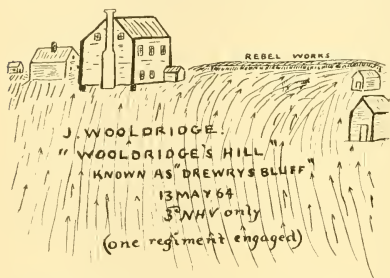 REBEL WORKS
J. WOOLDRIDGE.
"WOOLDRIDGE'S HILL"
KNOWN AS "DREWRYS BLUFF"
13 MAY 64
3rd NHV only
(one regiment engaged)